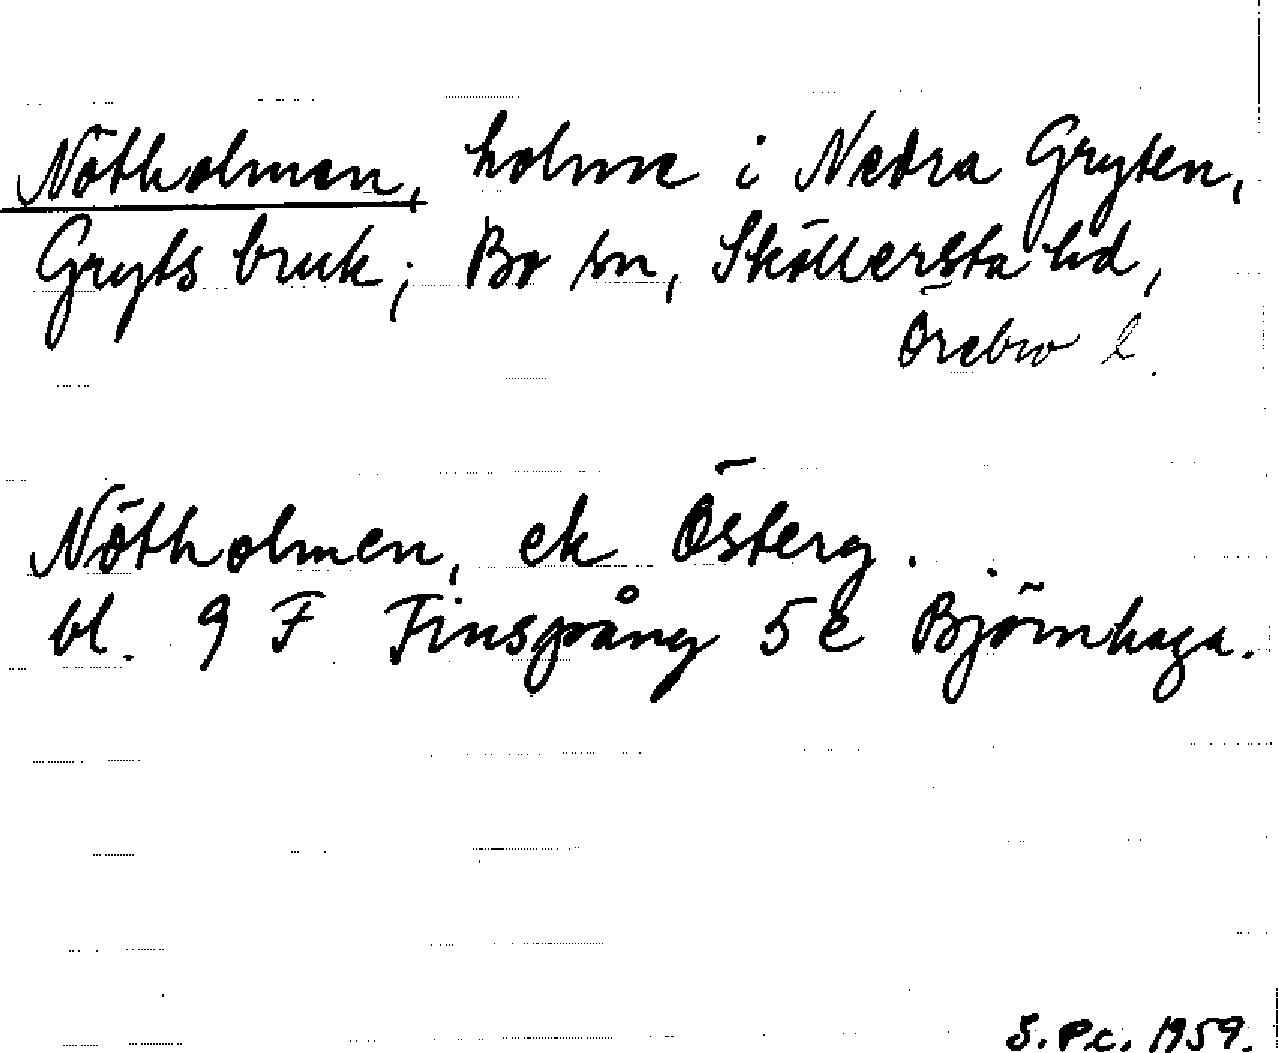 Nötholmen, holme i Nedra Gryten,
Gryts bruk; Bo sn, Sköllersta hd,
Örebro l.
Nötholmen, ek Österg.
bl. 9 F Finspång 5 e Björnhaga.
S.P.c. 1959.